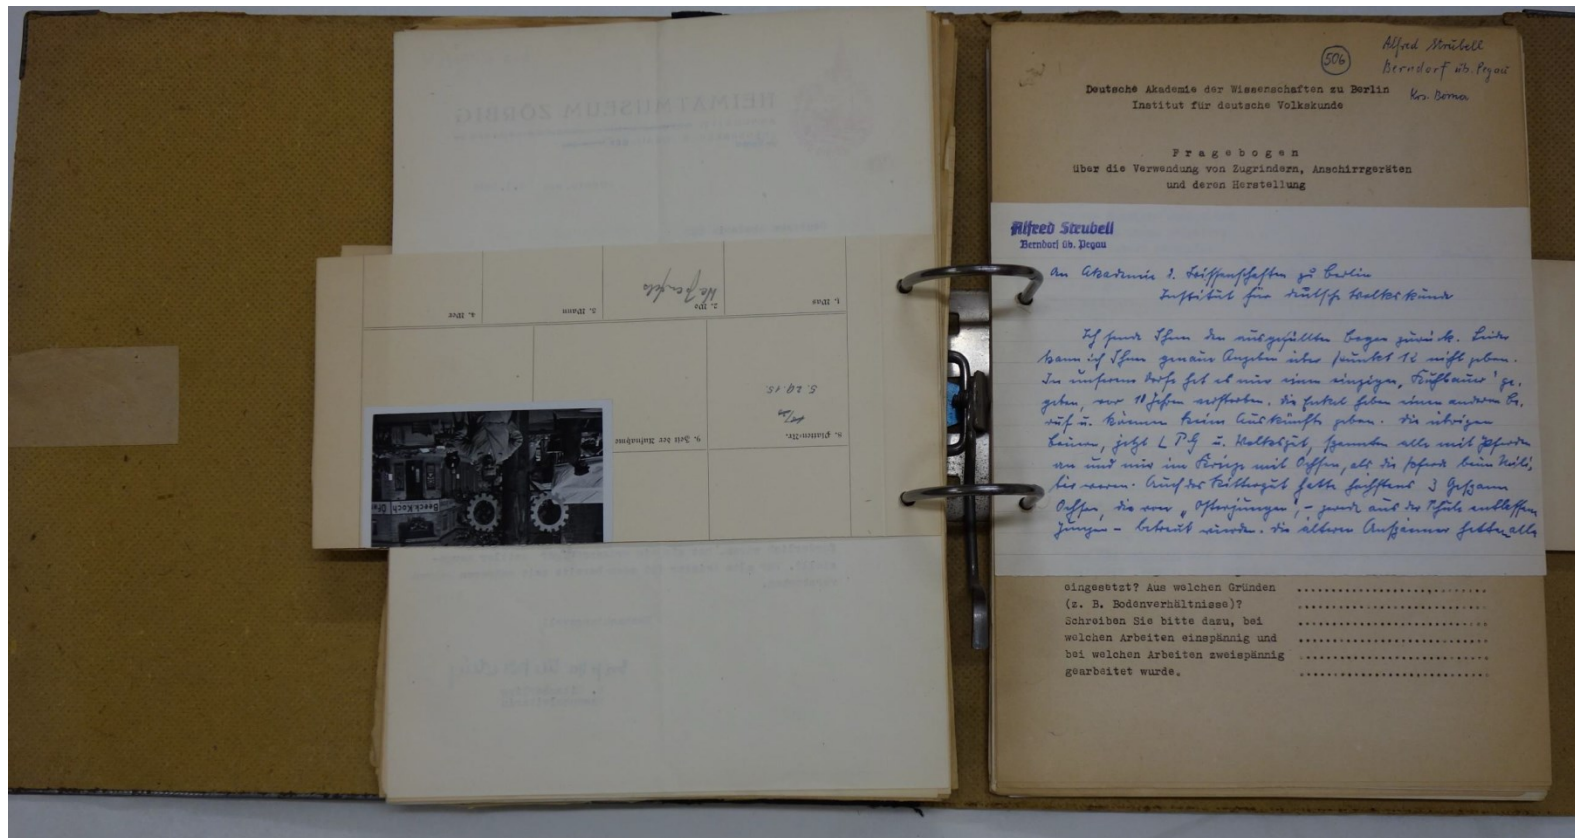 HEIMATMUSEUM ZÖRBIG
1. Was
2. Wo
3. Wann
4. Wer
8. Platten-Nr.
9. Zeit der Aufnahme
Beeck Koch
506
Alfred Strubell
Berndorf üb. Pegau
Krs. Borna
Deutsche Akademie der Wissenschaften zu Berlin
Institut für deutsche Volkskunde
Fragebogen
über die Verwendung von Zugrindern, Anschirrgeräten
und deren Herstellung
Alfred Strubell
Berndorf üb. Pegau
An Akademie d. Wissenschaften zu Berlin
Institut für deutsche Volkskunde
Ich sende Ihnen den ausgefüllten Bogen zurück. Leider
kann ich Ihnen genaue Angaben über Punkt 12 nicht geben.
In unserem Dorfe hat es nur einen einzigen „Kuhbauer" ge-
geben, vor 10 Jahren verstorben. Die Enkel haben einen anderen Be-
ruf u. können keine Auskünfte geben. Die übrigen
Bauern, jetzt LPG u. Volksgut, spannten alle mit Pferden
an und nur im Kriege mit Ochsen, als die Pferde beim Mili-
tär waren. Auch das Rittergut hatte höchstens 3 Gespann
Ochsen, die von „Osterjungen", – gerade aus der Schule entlassen
Jungen – betreut wurden. Die älteren Anspänner hatten alle
eingesetzt? Aus welchen Gründen
(z. B. Bodenverhältnisse)?
Schreiben Sie bitte dazu, bei
welchen Arbeiten einspännig und
bei welchen Arbeiten zweispännig
gearbeitet wurde.